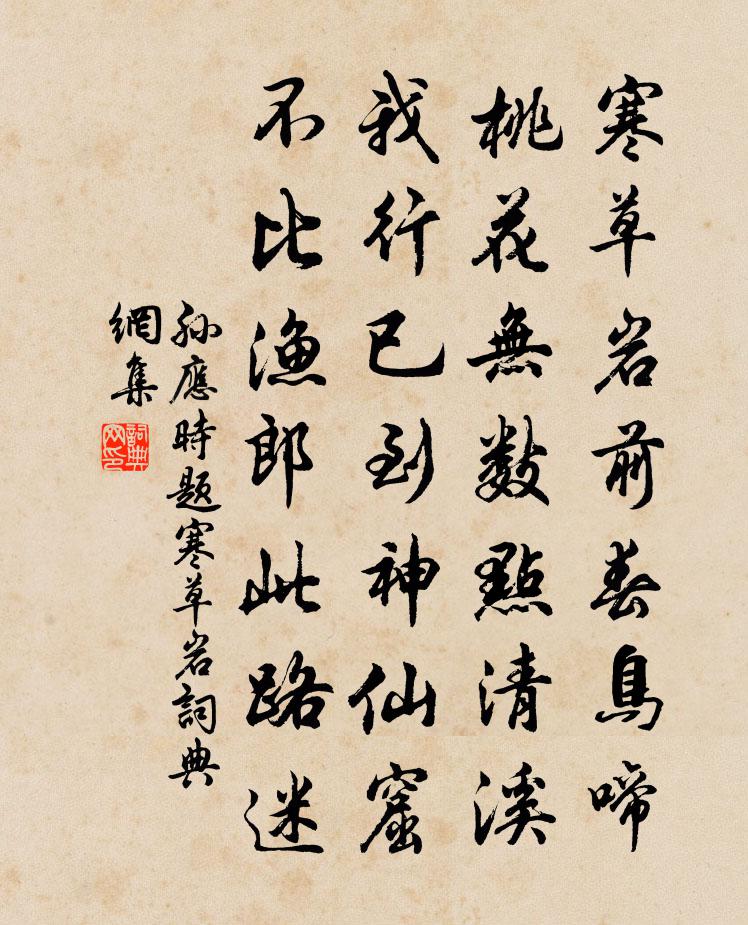 寒草岩前春鳥啼
桃花無數點清溪
我行已到神仙窟
不比漁郎此路迷
孫應時題寒草岩詞典
網集
詞典
网印